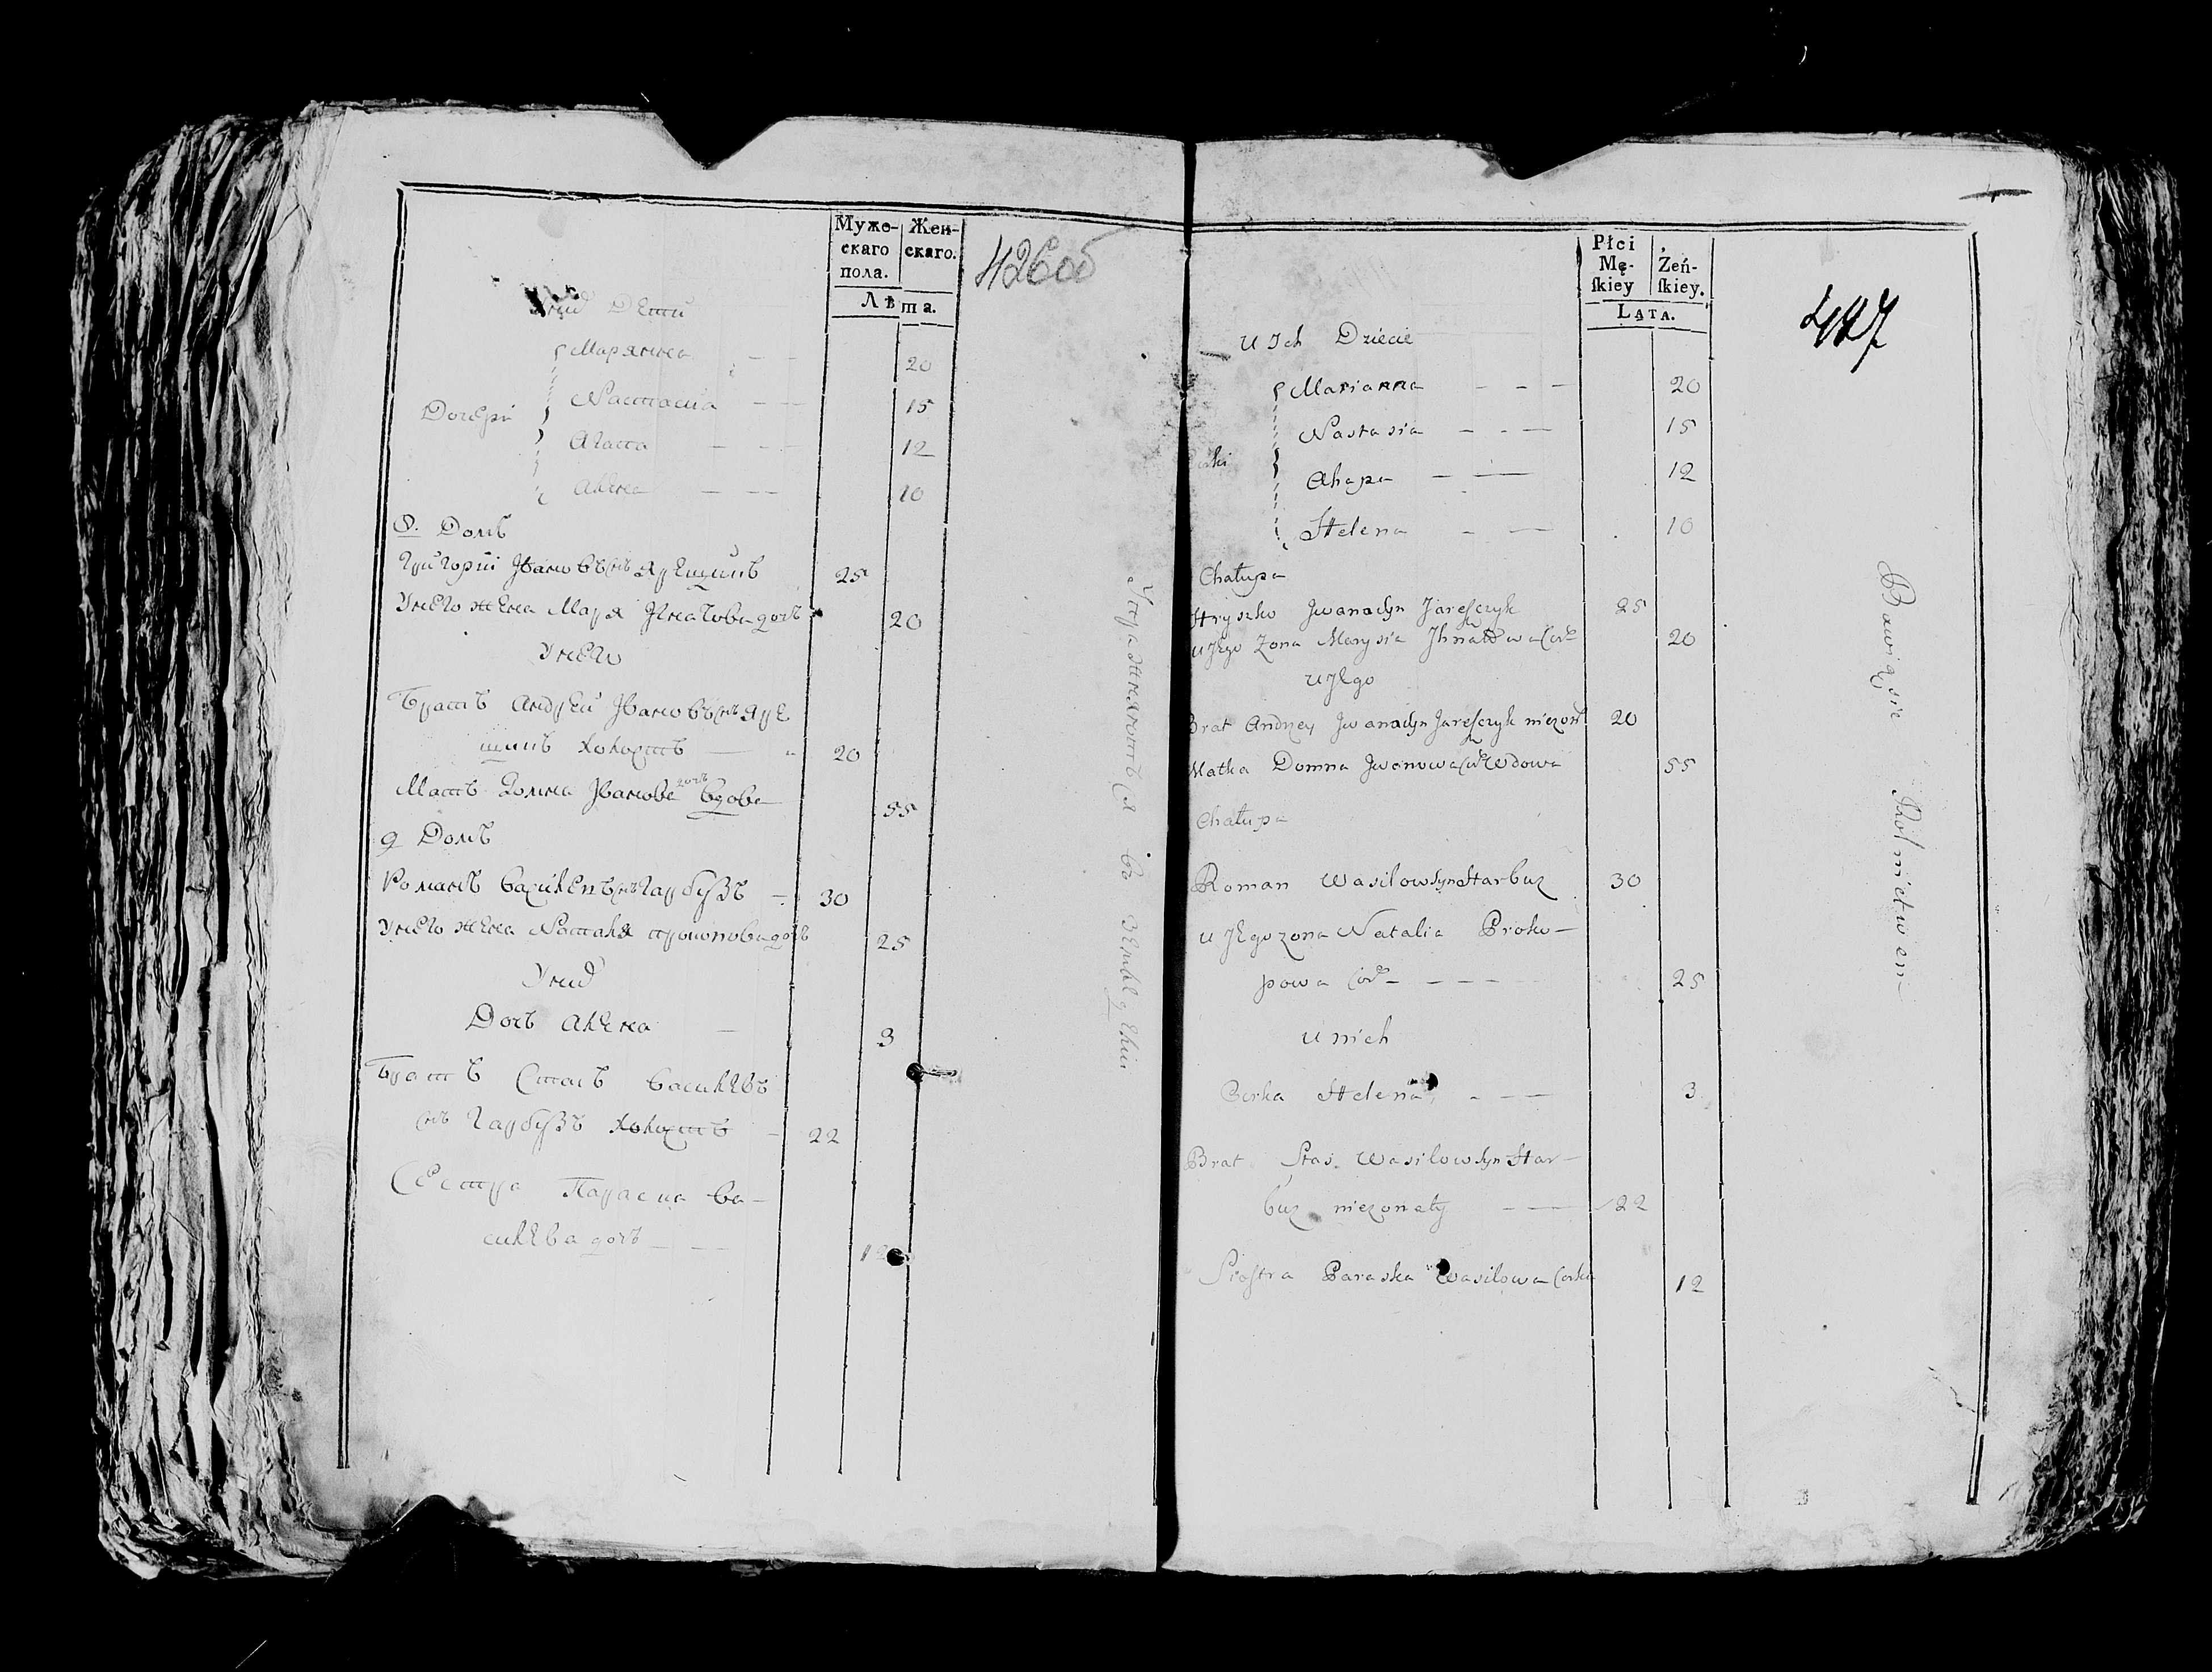 Муже-
скаго
пола.
Жен-
скаго.
Лѣта.
426об
Дети
Дочери
Марянна — — 20
Настасиа — — 15
Агапа — — 12
Алена — — 10
8. Домъ
Григорий Ивановъ снъ Ярещикъ 25
Унего жена Маря Игнатова дочь 20
Унего
Братъ Андрей Ивановъ снъ Яре
щикъ холостъ — 20
Мать Домна Иванова дочь вдова 55
9 Домъ
Романъ Васильевъ снъ Гарбузъ — 30
Унего жена Наталя Прокопова дочь 25
Унихъ
Дочь Алена — 3
Братъ Стась Васильевъ
снъ Гарбузъ холостъ — 22
Сестра Параска Ва-
сильева дочь — — 12
Упражняются въ земледелии
Płci
Mę-
ſkiey
Żeń-
ſkiey.
LATA.
427
U Ich Dziecie
Marianna - - - 20
Nastasia - - - 15
Ahapa - — 12
Helena - — 10
Chałupa
Hryszko Jwana syn Jareſczyk 25
u Jego Zona Marysia Jhnatowa Cor 20
u Jego
Brat Andrzey Jwana syn Jareſczyk niezon 20
Matka Domna Jwanowa Cor Wdowa 55
Chałupa
Roman Wasilow syn Harbuz 30
u Jego zona Natalia Proko-
powa Cor - - - - 25
u nich
Corka Helena - - - 3
Brat Stas Wasilow syn Har-
buz niezonaty - — 22
Sioſtra Paraska Wasilowa Corka 12
Bawią się Rolnictwem